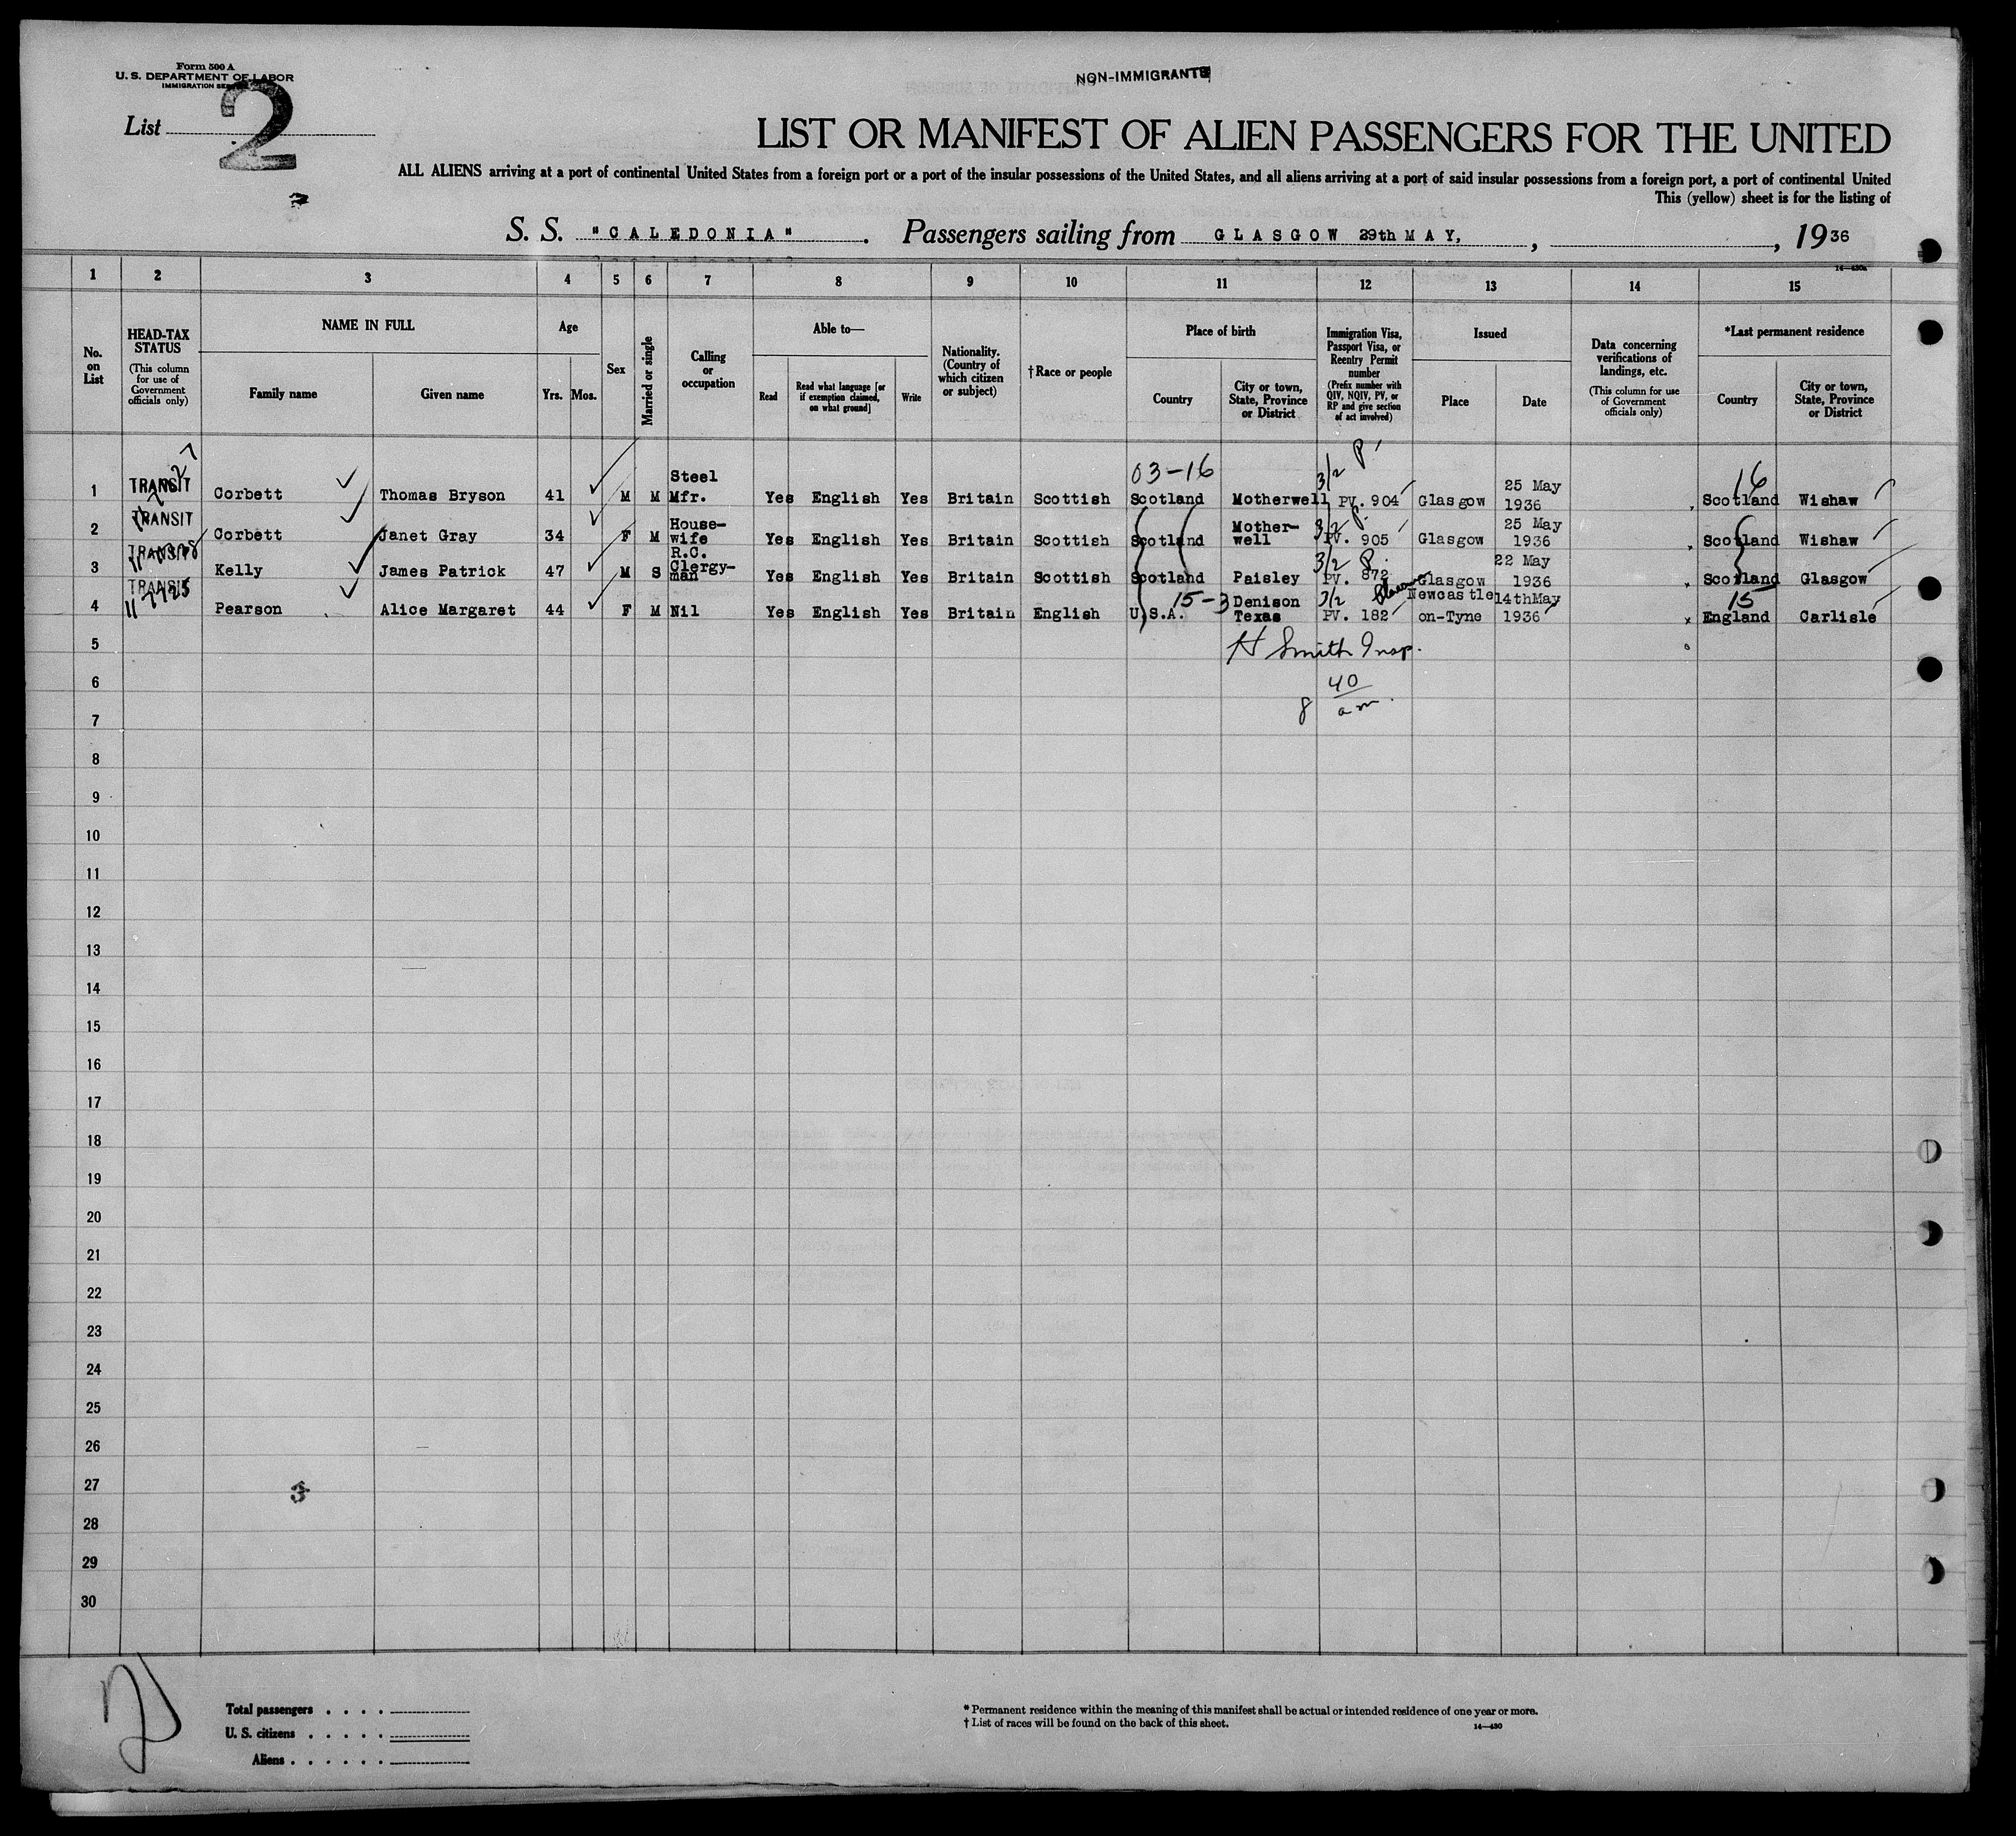 Form 500 A
U. S. DEPARTMENT OF LABOR
IMMIGRATION
NON-IMMIGRANTS
List 2
LIST OR MANIFEST OF ALIEN PASSENGERS FOR THE UNITED
ALL ALIENS arriving at a port of continental United States from a foreign port or a port of the insular possessions of the United States, and all aliens arriving at a port of said insular possessions from a foreign port, a port of continental United
This (yellow) sheet is for the listing of
S. S. "CALEDONIA". Passengers sailing from GLASGOW 29th MAY, , , 1936
14—430a
1 2 3 4 5 6 7 8 9 10 11 12 13 14 15
No. on List
HEAD-TAX STATUS
(This column for use of Government officials only)
NAME IN FULL
Family name
Given name
Age
Yrs.
Mos.
Sex
Married or single
Calling or occupation
Able to—
Read
Read what language [or if exemption claimed, on what ground]
Write
Nationality. (Country of which citizen or subject)
†Race or people
Place of birth
Country
City or town, State, Province or District
Immigration Visa, Passport Visa, or Reentry Permit number
(Prefix number with QIV, NQIV, PV, or RP and give section of act involved)
Issued
Place
Date
Data concerning verifications of landings, etc.
(This column for use of Government officials only)
*Last permanent residence
Country
City or town, State, Province or District
03-16 3/2 P 16
1 TRANSIT Corbett Thomas Bryson 41 M M Steel Mfr. Yes English Yes Britain Scottish Scotland Motherwell PV. 904 Glasgow 25 May 1936 Scotland Wishaw
2 TRANSIT Corbett Janet Gray 34 F M House-wife Yes English Yes Britain Scottish Scotland Mother-well 3/2 P. PV. 905 Glasgow 25 May 1936 Scotland Wishaw
3 TRANSIT Kelly James Patrick 47 M S R.C. Clergy-man Yes English Yes Britain Scottish Scotland Paisley 3/2 P. PV. 872 Glasgow 22 May 1936 Scotland Glasgow
4 TRANSIT Pearson Alice Margaret 44 F M Nil Yes English Yes Britain English U.S.A. 15-3 Denison Texas 3/2 PV. 182 Newcastle on-Tyne 14thMay 1936 15 England Carlisle
5
H Smith Insp.
6
8 40 am.
7
8
9
10
11
12
13
14
15
16
17
18
19
20
21
22
23
24
25
26
27
3
28
29
30
Total passengers . . . .
U. S. citizens . . . . .
Aliens . . . . . .
* Permanent residence within the meaning of this manifest shall be actual or intended residence of one year or more.
† List of races will be found on the back of this sheet.
14—430